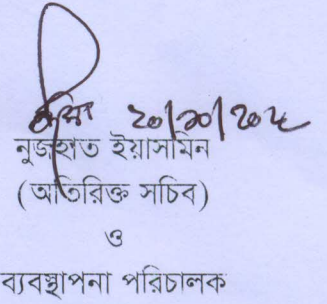 ২০/১০/২০২৫
নুজহাত ইয়াসমিন
(অতিরিক্ত সচিব)
ও
ব্যবস্থাপনা পরিচালক